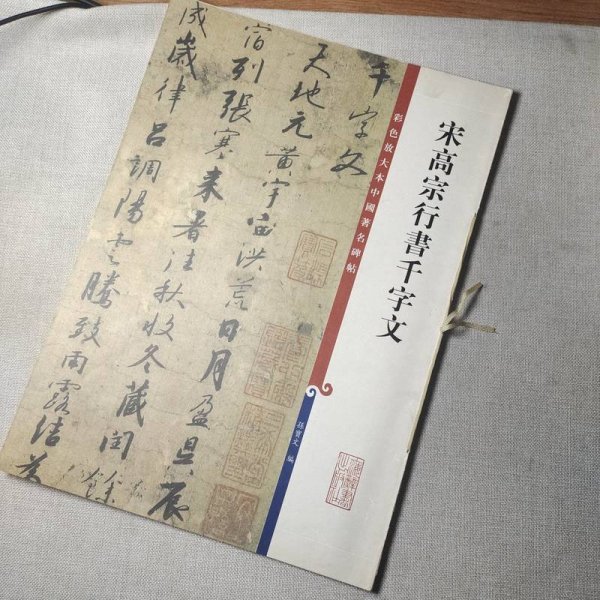 宋高宗行書千字文
彩色放大本中國著名碑帖
孫寶文 編
千字文
天地元黃宇宙洪荒日月盈昃辰
宿列張寒来暑往秋收冬藏閏餘
成歲律呂調陽雲騰致雨露結為